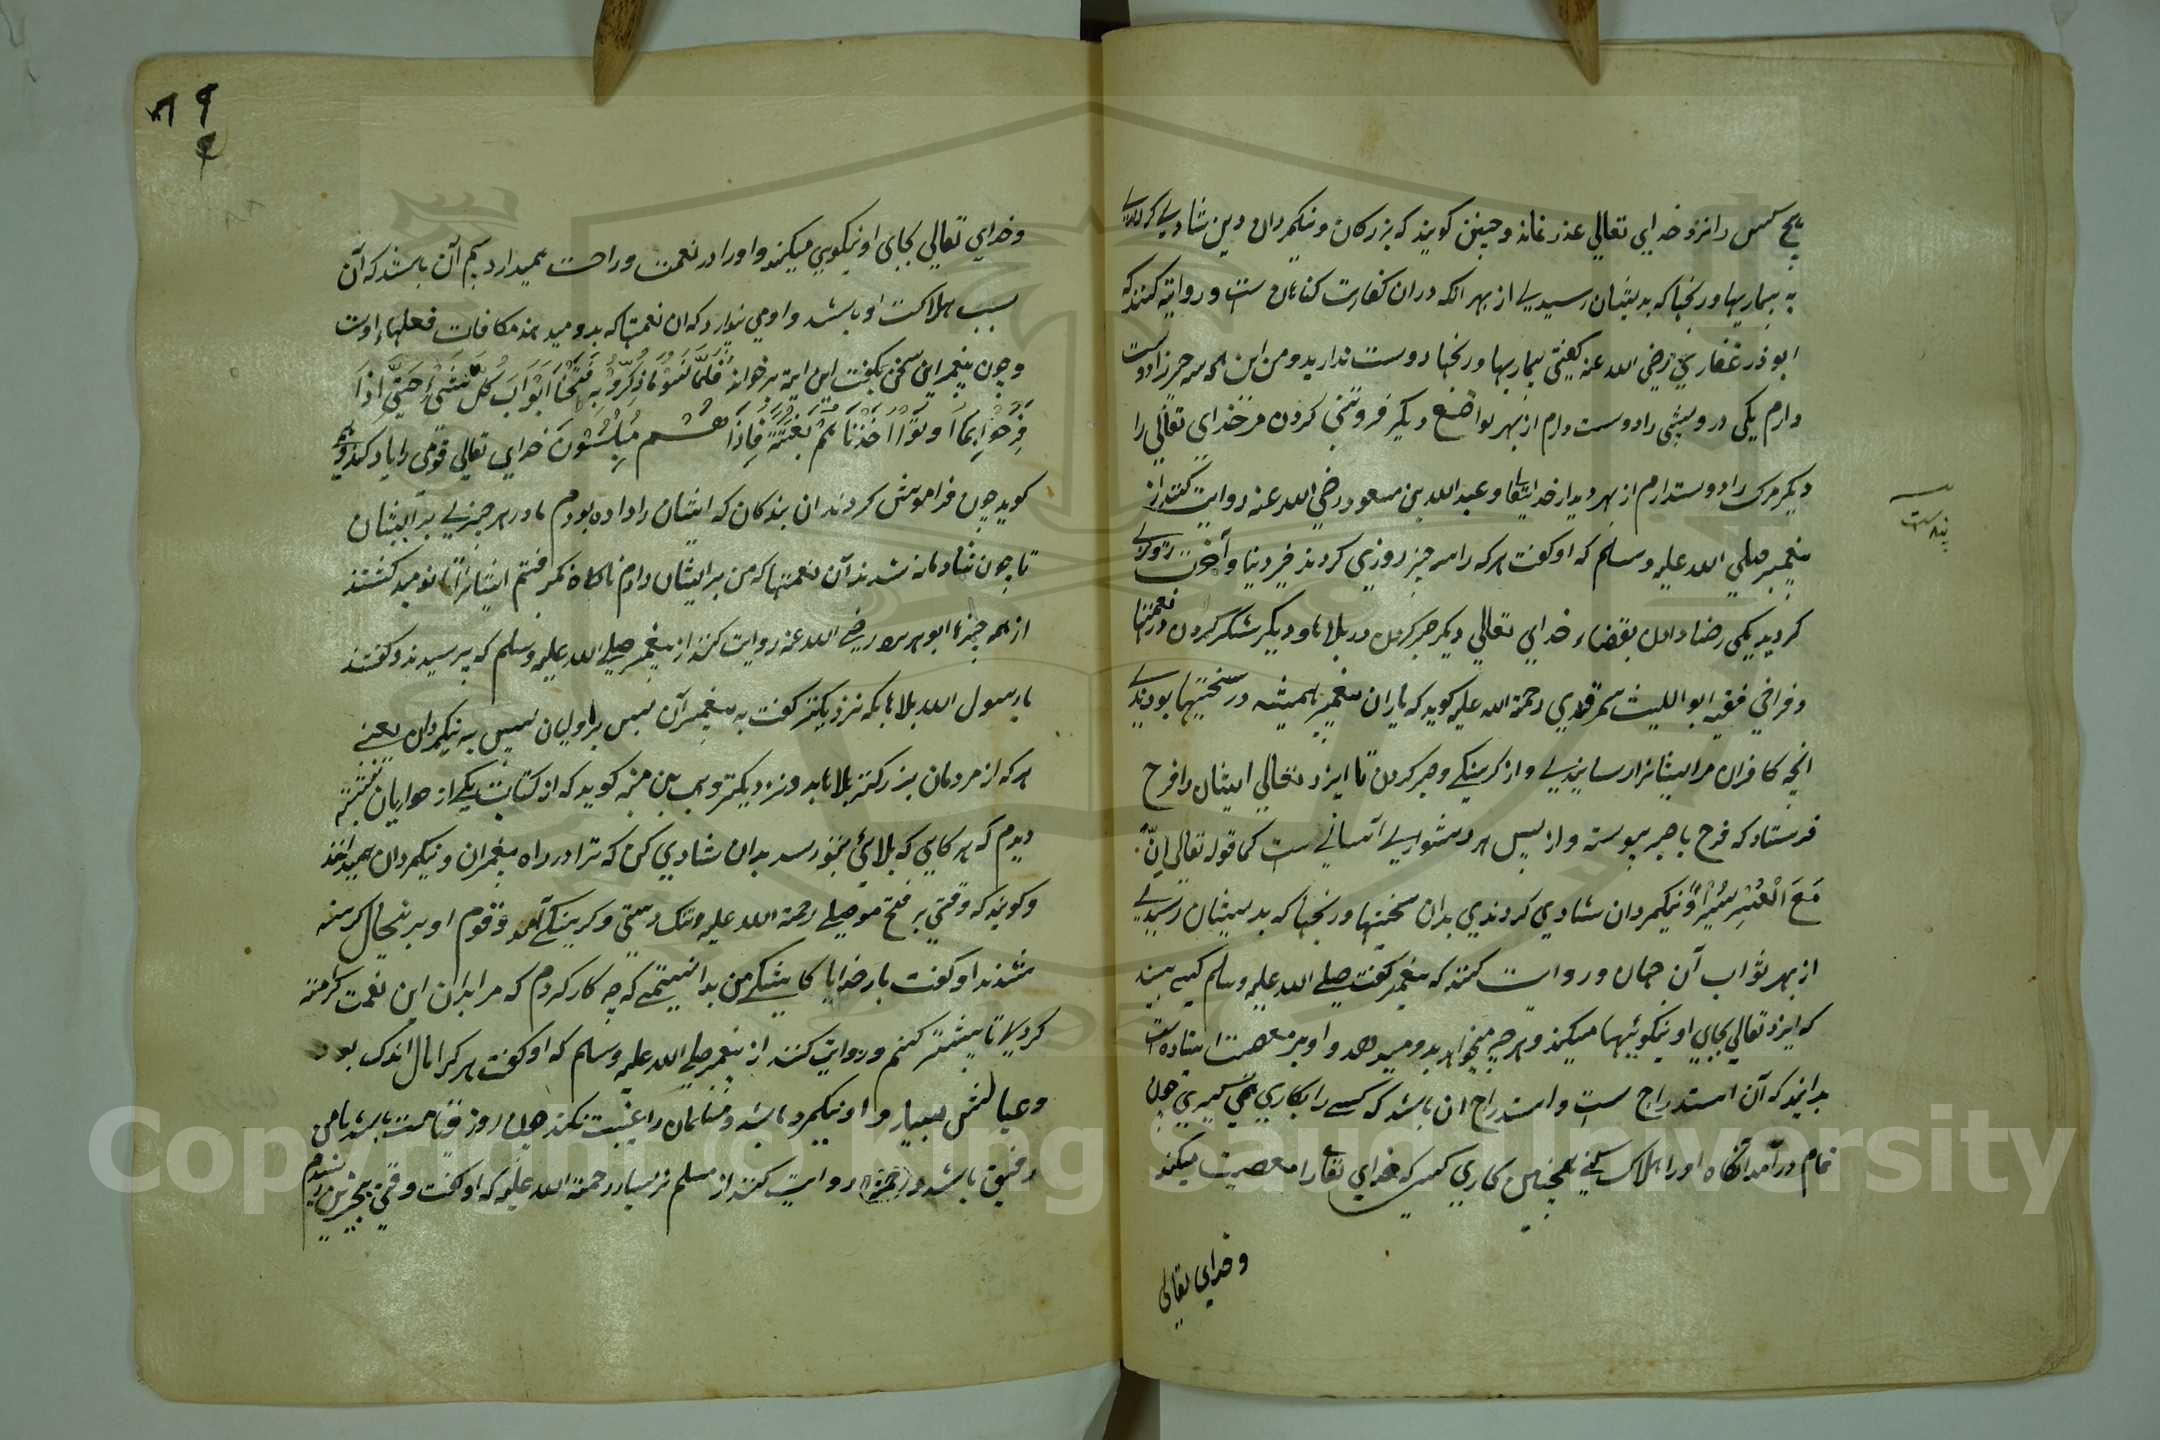 هیچ کس را نزد خدایي تعالي عذر نماند و چنین کویند که بزرکان و نیکمردان دین شادیي کردندیي
به بیماریها و رنجها که بدیشان رسیدیي از بهر انکه دران کفارت کناهان ست و روایة کنند که
ابوذر غفاري رضي الله عنه کفتی بیماریها و رنجها دوست ندارید و من این هر سه چیز را دوست
دارم یکی درویشی را دوست دارم از بهر تواضع دیکر فروتنی کردن مر خدای تعالی را
دیکر مرک را دوستدارم از بهر دیدار خدایتعا و عبد الله بن مسعود رضي الله عنه روایت کنند از
پیغمبر صلي الله علیه وسلم که او کفت هر که را سه چیز روزي کردند خیر دنیا و آخرت روزي
کردید یکی رضا دادن بقضاء خدایي تعالي دیکر صبر کردن در بلاها و دیکر شکر کردن در نعمتها
و فراخي فقیه ابو اللیث سمرقندي رحمة الله علیه کوید که یاران پیغمبر همیشه در سختیها بودندیي
انچه کافران مر ایشانرا رسانیدیي و از کرسنکي و صبر کردن تا ایزد تعالي ایشان را فرج
فرستاد که فرج با صبر پیوسته و از پس هر دشواریي آسانیي ست کما قوله تعالي إنّ
مَعَ الْعُسْرِ يُسْرًا و نیکمردان شادي کردندي بدان سختیها و رنجها که بدیشان رسیدیي
از بهر ثواب آن جهان و روایت کنند که پیغمبر کفت صلي الله علیه وسلم کسی بیند
که ایزد تعالي بجاي او نیکوئیها میکند و هر چه میخواهد بدو میدهد و او بر معصیت ایستاده است
بدانید که آن استدراج ست و استدراج ان باشد که کسي را بکاري همي کیري چون
تمام درآمد آنکاه او را هلاک کني همچنین کاري کسي که خداي تعا را معصیت میکند
و خدایي تعالی
و خدایي تعالي بجاي او نیکویي میکند و او را در نعمت و راحت همیدارد بیم آن باشد که آن
سبب هلاکت او باشد و او می پندارد که ان نعمتها که بدو میدهند مکافات فعلهاء اوست
و چون پیغمبر این سخن بکفت این ایة برخواند فَلَمَّا نَسُوا مَا ذُكِّرُوا بِهِ فَتَحْنَا أَبْوَابَ كُلِّ شَيْءٍ حَتَّى إِذَا
فَرِحُوا بِمَا أُوتُوا أَخَذْنَاهُمْ بَغْتَةً فَإِذَا هُمْ مُبْلِسُونَ خدایي تعالي قومی را یاد کند و
کوید چون فراموش کردند ان بندکان که ایشان را داده بودم ما در هر چیزیي بر ایشان
تا چون شادمانه شدند آن نعمتها که من بر ایشان دادم ناکاه بکرفتم ایشانرا تا نومید کشتند
از همه چیزها ابو هریره رضي الله عنه روایت کند از پیغمبر صلي الله علیه وسلم که پرسیدند و کفتند
یا رسول الله بلاها بکه نزدیکتر کفت به پیغمبرآن پس براولیان پس به نیکمردان یعنے
هر که از مردمان بزرکتر بلاها بدو نزدیکتر وهب بن منبه کوید که از کتابت یکي از حواریان نبشته
دیدم که هر کاهي که بلائي بتو رسد بدان شادي کن که ترا در راه پیغمبران و نیکمردان همیدارند
و کویند که وقتي بر فتح موصلي رحمة الله علیه تنک دستي و کرسنکي آمد و قوم او بر نیحال کرسنه
شدند او کفت بار خدایا کاشکي من بدانستمي که چه کار کردم که مرا بدان این نعمت کرامت
کردي تا بیشتر کنم و روایت کنند از پیغمبر صلي الله علیه وسلم که او کفت هر کرا مال اندک بود
و عیالش بسیار و او نیکمرد باشد و مسلمان را غیبت نکند چون روز قیامت باشد با من
رفیق باشد و روایت کنند از مسلم بن یسار رحمة الله علیه که او کفت وقتي ببحرین رسیدم